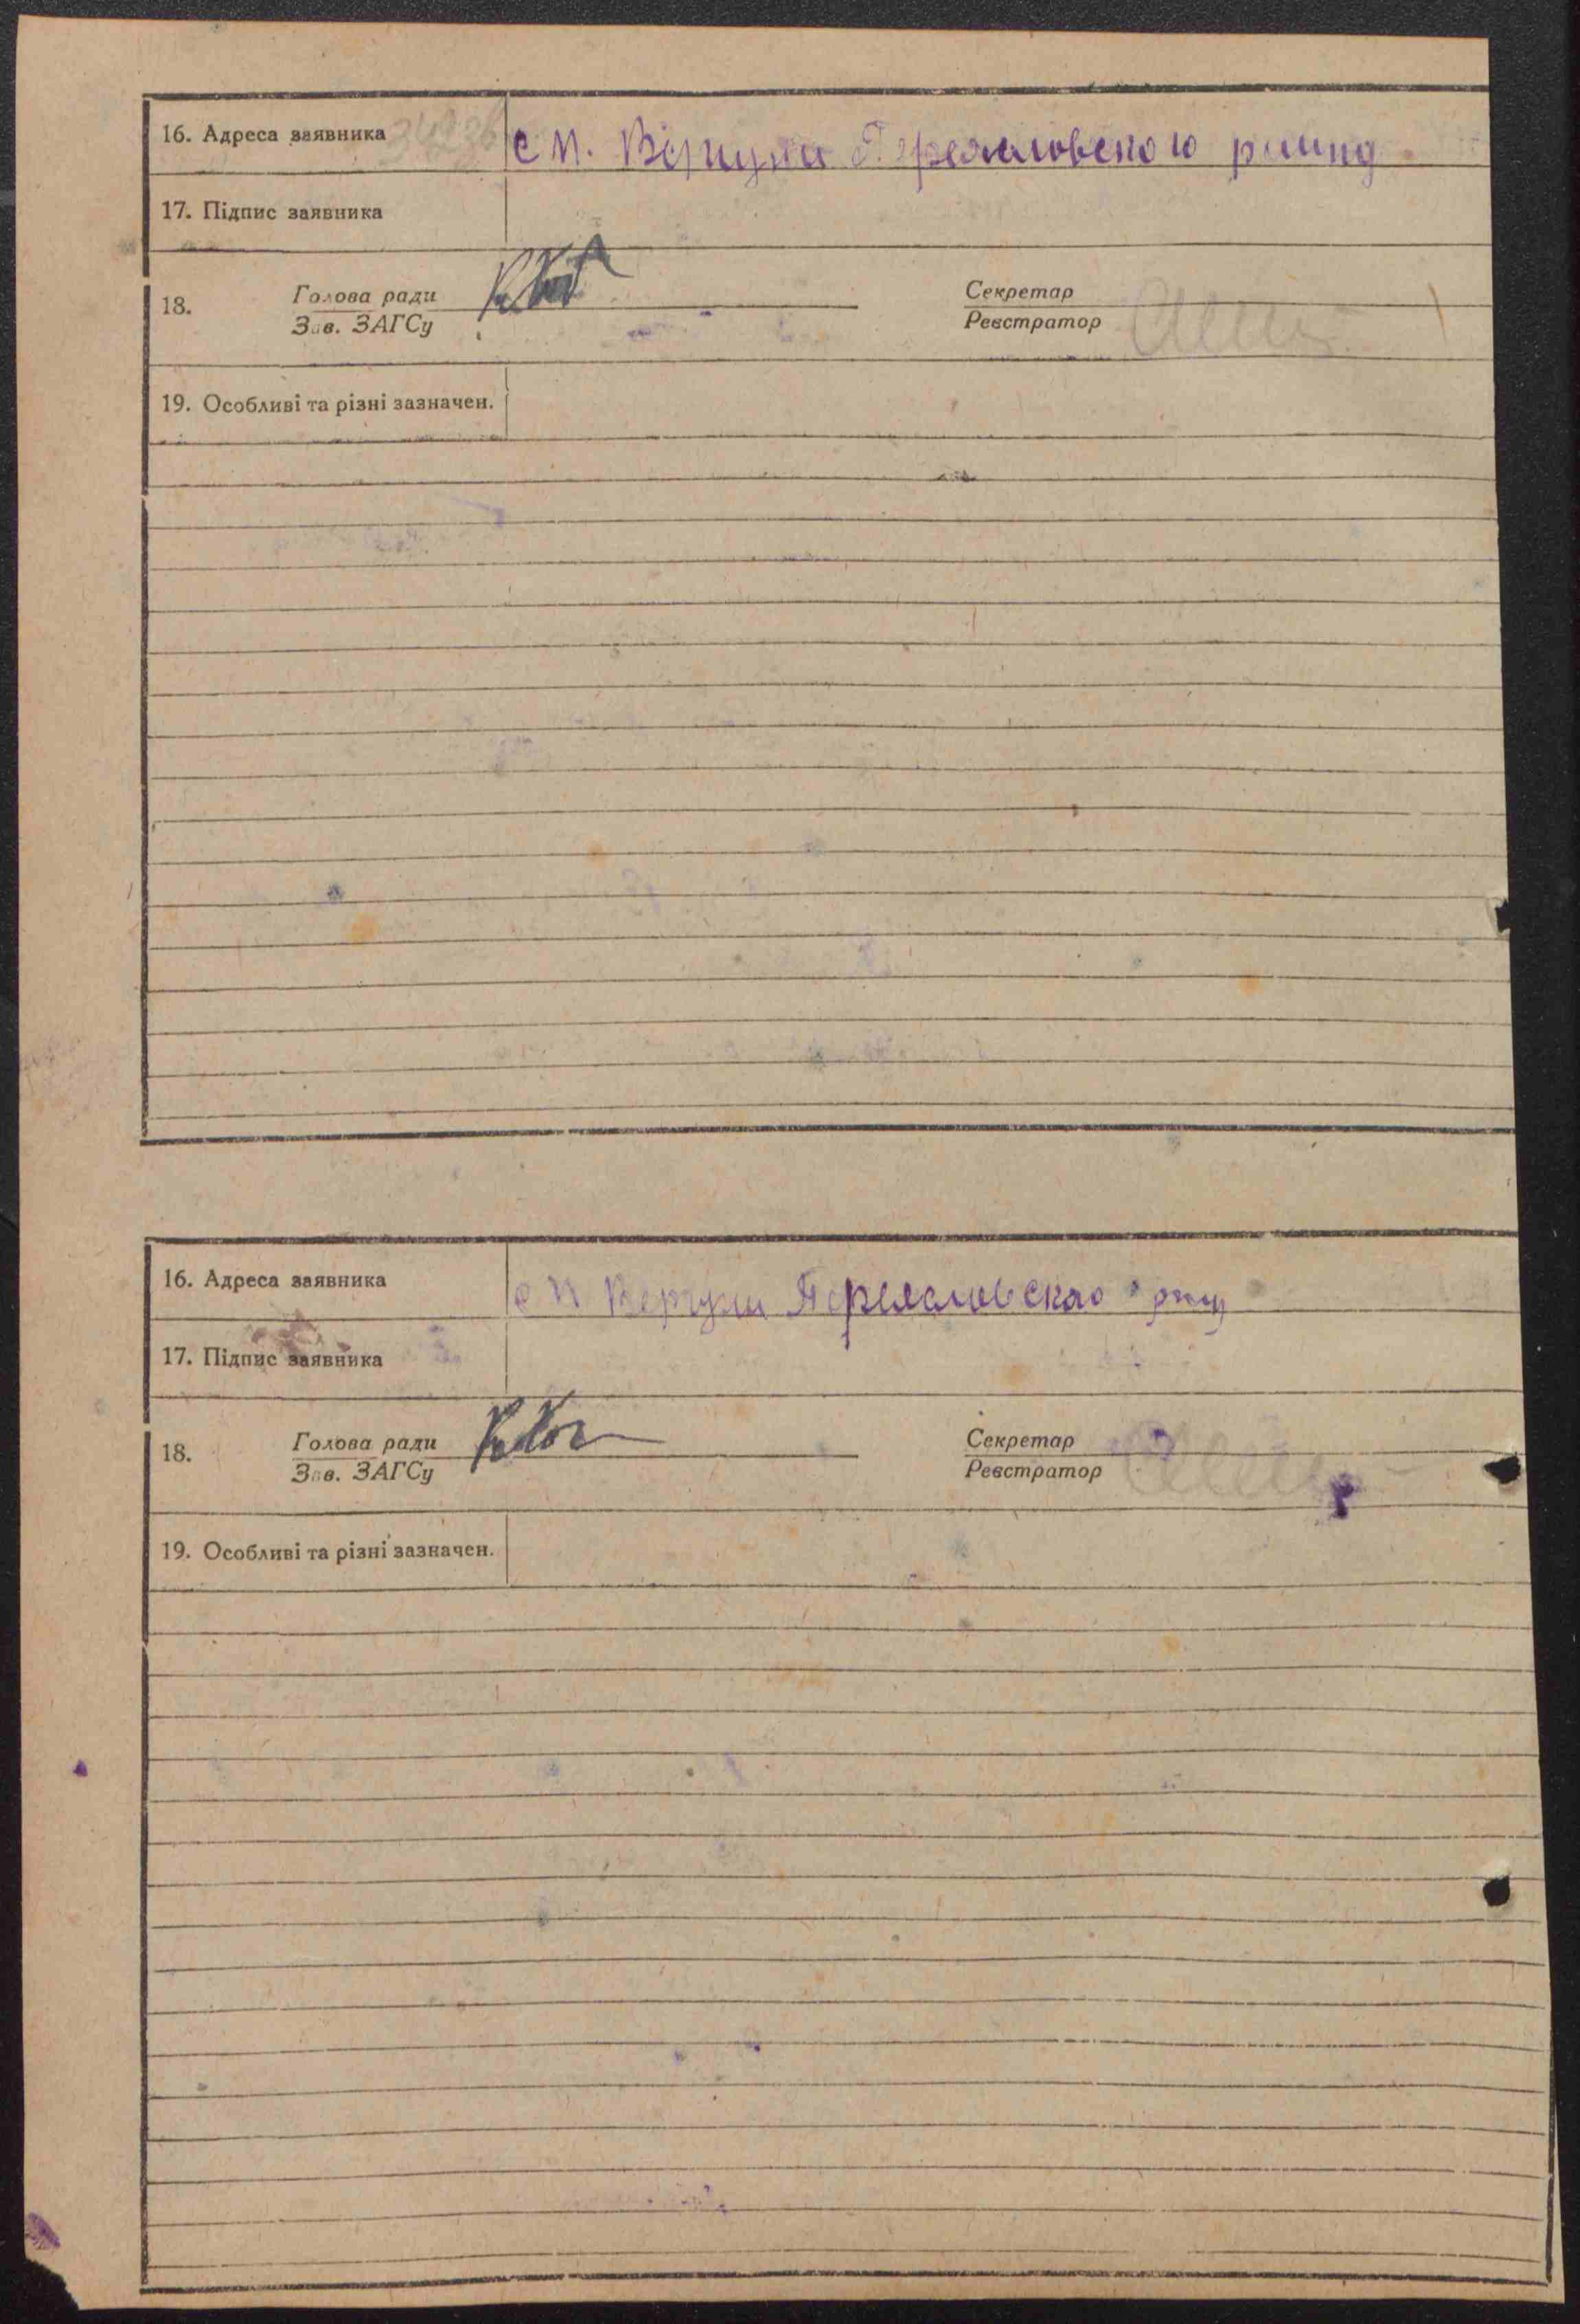 16. Адреса заявника
с М. Вергуни Переяловского району
17. Підпис заявника
18. Голова ради Секретар
Зав. ЗАГСу Реєстратор
19. Особливі та різні зазначен.
16. Адреса заявника
с М Вергуни Переясловского
17. Підпис заявника
18. Голова ради Секретар
Зав. ЗАГСу Реєстратор
19. Особливі та різні зазначен.